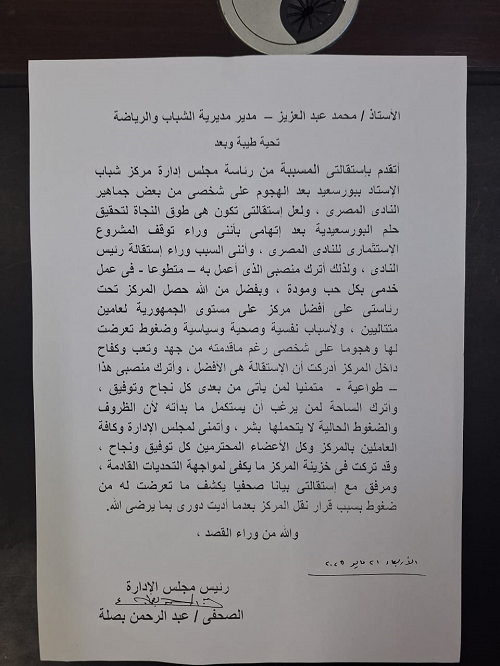 الأستاذ / محمد عبد العزيز – مدير مديرية الشباب والرياضة
تحية طيبة وبعد
أتقدم بإستقالتى المسببة من رئاسة مجلس إدارة مركز شباب
الاستاد ببورسعيد بعد الهجوم على شخصى من بعض جماهير
النادى المصرى ، ولعل إستقالتى تكون هى طوق النجاة لتحقيق
حلم البورسعيدية بعد إتهامى بأننى وراء توقف المشروع
الاستثمارى للنادى المصرى ، وأننى السبب وراء إستقالة رئيس
النادى ، ولذلك أترك منصبى الذى أعمل به – متطوعا - فى عمل
خدمى بكل حب ومودة ، وبفضل من الله حصل المركز تحت
رئاستى على أفضل مركز على مستوى الجمهورية لعامين
متتاليين ، ولاسباب نفسية وصحية وسياسية وضغوط تعرضت
لها وهجوما على شخصى رغم ماقدمته من جهد وتعب وكفاح
داخل المركز أدركت أن الاستقالة هى الأفضل ، وأترك منصبى هذا
– طواعية - متمنيا لمن يأتى من بعدى كل نجاح وتوفيق ،
وأترك الساحة لمن يرغب أن يستكمل ما بدأته لأن الظروف
والضغوط الحالية لا يتحملها بشر ، وأتمنى لمجلس الإدارة وكافة
العاملين بالمركز وكل الأعضاء المحترمين كل توفيق ونجاح ،
وقد تركت فى خزينة المركز ما يكفى لمواجهة التحديات القادمة ،
ومرفق مع إستقالتى بيانا صحفيا يكشف ما تعرضت له من
ضغوط بسبب قرار نقل المركز بعدما أديت دورى بما يرضى الله.
والله من وراء القصد ،
الأربعاء ٢١ مايو ٢٠٢٥
رئيس مجلس الإدارة
الصحفى / عبد الرحمن بصلة